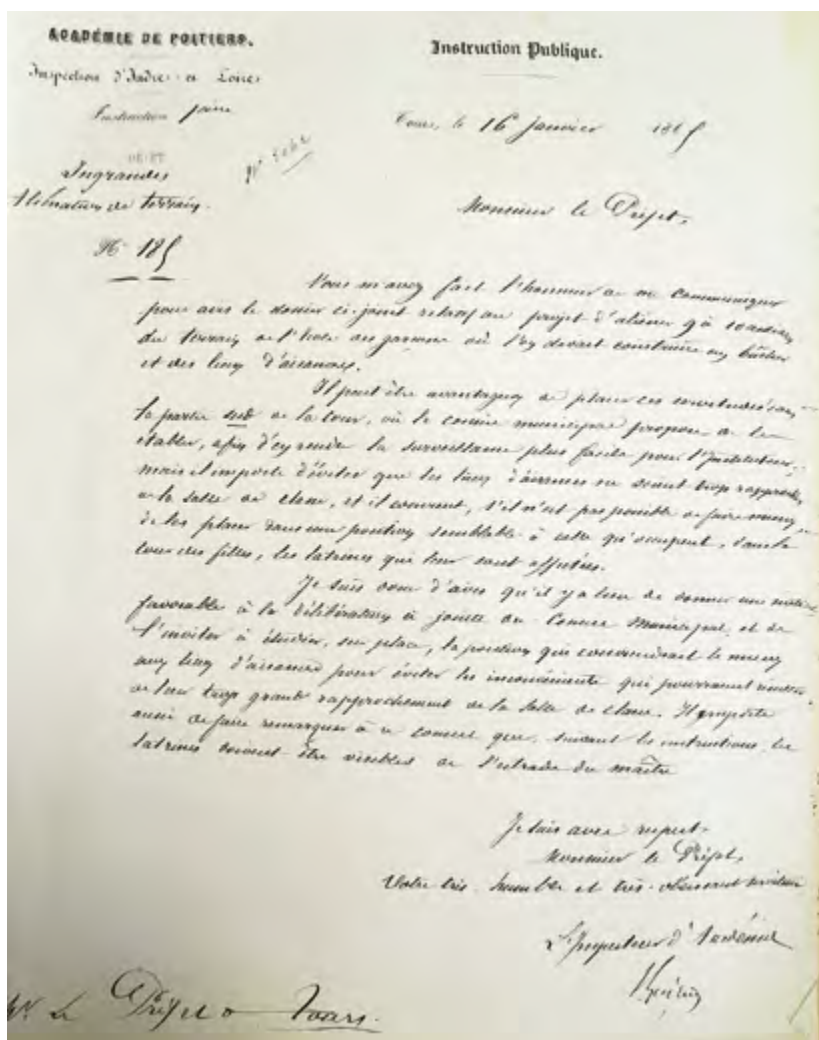 ACADÉMIE DE POITIERS.
Inspection d'Indre-et-Loire
Instruction p.aire
OBJET
Ingrandes
Aliénation de terrain.
N° 185
Instruction Publique.
Tours, le 16 janvier 1865
Monsieur le Préfet,
Vous m'avez fait l'honneur de me communiquer
pour avis le dossier ci-joint relatif au projet d'aliéner 9 à 10 ares
du terrain de l'école des garçons où l'on devait construire un bûcher
et des lieux d'aisances.
Il peut être avantageux de placer ces servitudes dans
la partie sud de la cour, où le conseil municipal propose de les
établir, afin d'en rendre la surveillance plus facile pour l'Instituteur;
mais il importe d'éviter que les lieux d'aisances ne soient trop rapprochés
de la salle de classe, et il convient, s'il n'est pas possible de faire mieux
de les placer dans une position semblable à celle qu'occupent, dans la
cour des filles, les latrines qui leur sont affectées.
Je suis donc d'avis qu'il y a lieu de donner une suite
favorable à la délibération ci-jointe du Conseil Municipal, et de
l'inviter à étudier, sur place, la position qui conviendrait le mieux
aux lieux d'aisances pour éviter les inconvénients qui pourraient résulter
de leur trop grand rapprochement de la salle de classe. Il importe
aussi de faire remarquer à ce conseil que, suivant les instructions, les
latrines doivent être visibles de l'estrade du maître
Je suis avec respect,
Monsieur le Préfet,
Votre très humble et très obéissant serviteur
L'Inspecteur d'Académie
M. Le Préfet à Tours.